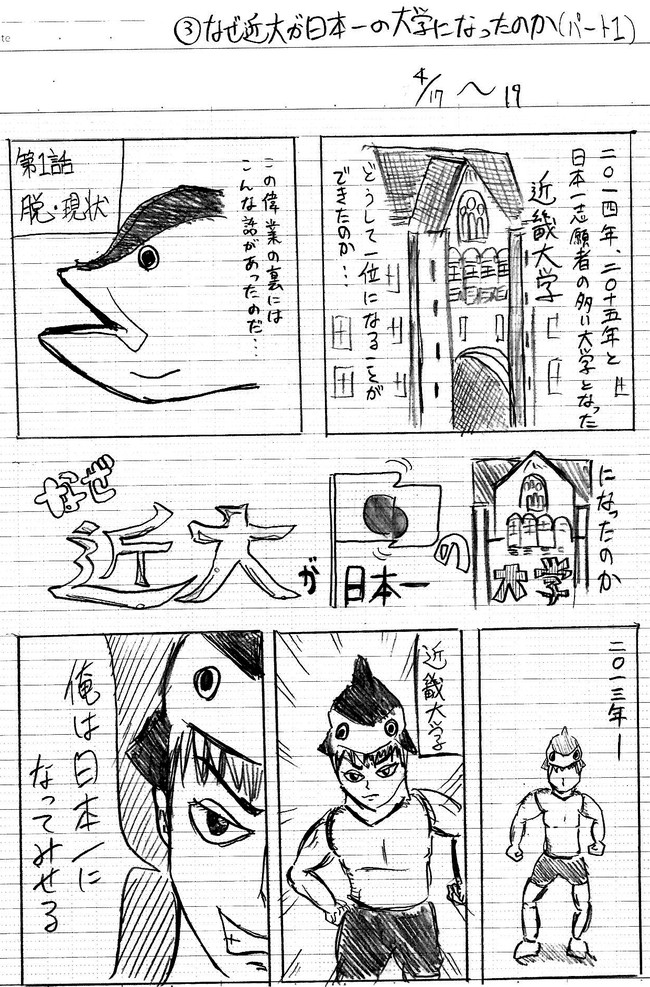 ③なぜ近大が日本一の大学になったのか(パート1)
4/17 〜 19
二〇一四年、二〇十五年と
日本一志願者の多い大学となった
近畿大学
どうして一位になることが
できたのか…
この偉業の裏には
こんな話があったのだ…
第1話
脱・現状
なぜ
近大
が
日本一
の
大学
になったのか
二〇一三年ー
近畿大学
俺は日本一に
なってみせる